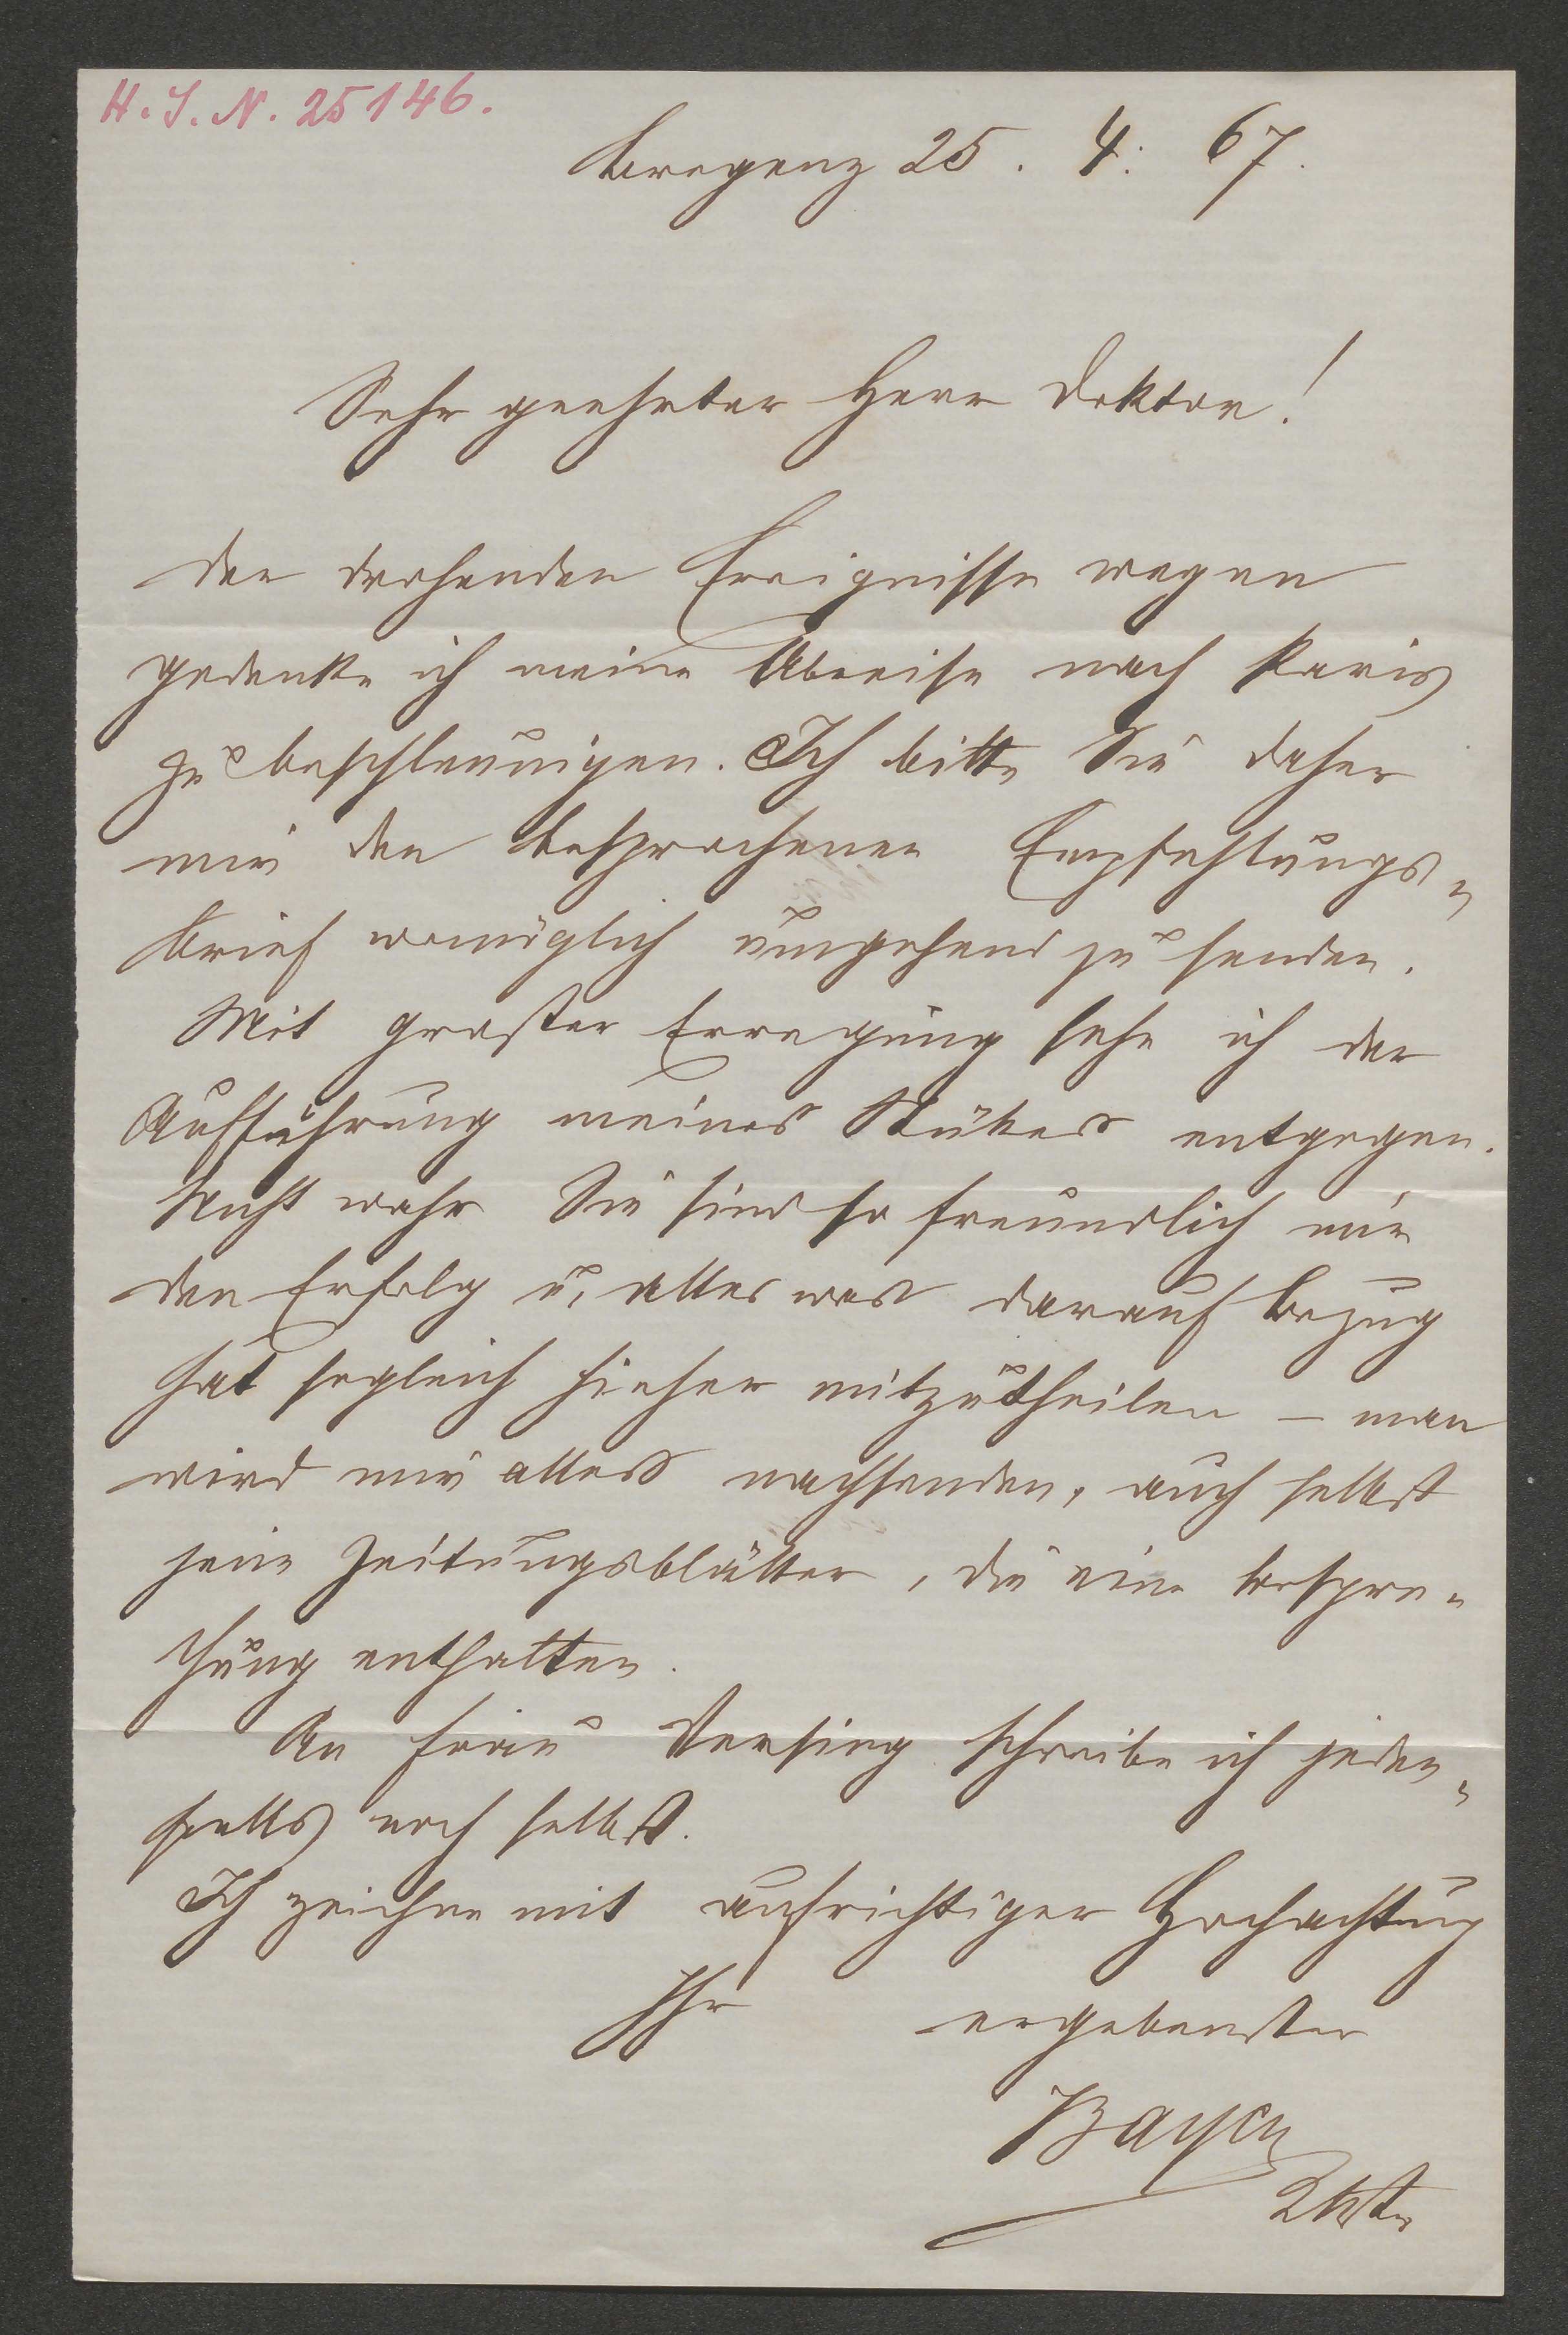 H. I. N. 25146.
Bregenz 25. 4. 67.
Sehr geehrter Herr Doktor!
Der drohenden Ereignisse wegen
gedenke ich meine Abreise nach Paris
zu beschleunigen. Ich bitte Sie daher
mir den besprochenen Empfehlungs-
brief womöglich umgehend zu senden.
Mit großer Erregung sehe ich der
Aufführung meines Stükes entgegen.
Nicht wahr Sie sind so freundlich mir
den Erfolg u. alles was darauf Bezug
hat sogleich hieher mitzutheilen – man
wird mir alles nachsenden, auch selbst
jene Zeitungsblätter, die eine Bespre-
chung enthalten.
An Frau Versing schreibe ich jeden-
falls noch selbst.
Ich zeichne mit aufrichtiger Hochachtung
Ihr ergebenster
Bayer